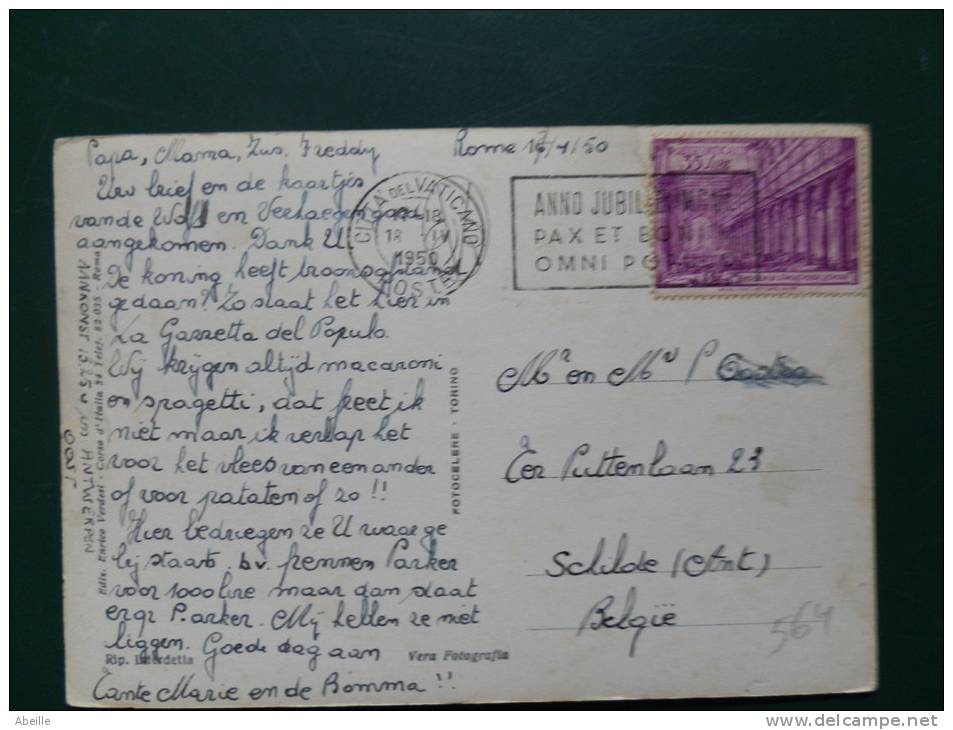 Papa, Mama, Zus, Freddy
Rome 18/4/50
Uw brief en de kaartjes
van de Wolf en Verhaegen goed
aangekomen. Dank U.
De koning heeft troonsafstand
gedaan? Zo staat het hier in
La Gazzetta del Popula.
Wij krijgen altijd macaroni
en spagetti, dat freet ik
niet maar ik verlap het
voor het vlees van een ander
of voor pataten of zo !!
Hier bedriegen ze U waar ge
bij staat. bv. pennen Parker
voor 1000 lire maar dan staat
er gr P.arker. Mij hebben ze niet
liggen. Goede dag aan
Tante Marie en de Bomma !!
AANKOMST 13 u 50 in ANTWERPEN
OOST
Ediz. Enrico Verdesi - Corso d'Italia 34 Telef. 82-025 Roma
Rip. Interdetta
Vera Fotografia
FOTOCELERE - TORINO
CITTA DEL VATICANO
18 IV
1950
POSTE
ANNO JUBIL
PAX ET BON
OMNI PO
35
Mr en Mw P
Ter Puttenlaan 23
Schilde (Ant)
België
564
Abeille
www.delcampe.net